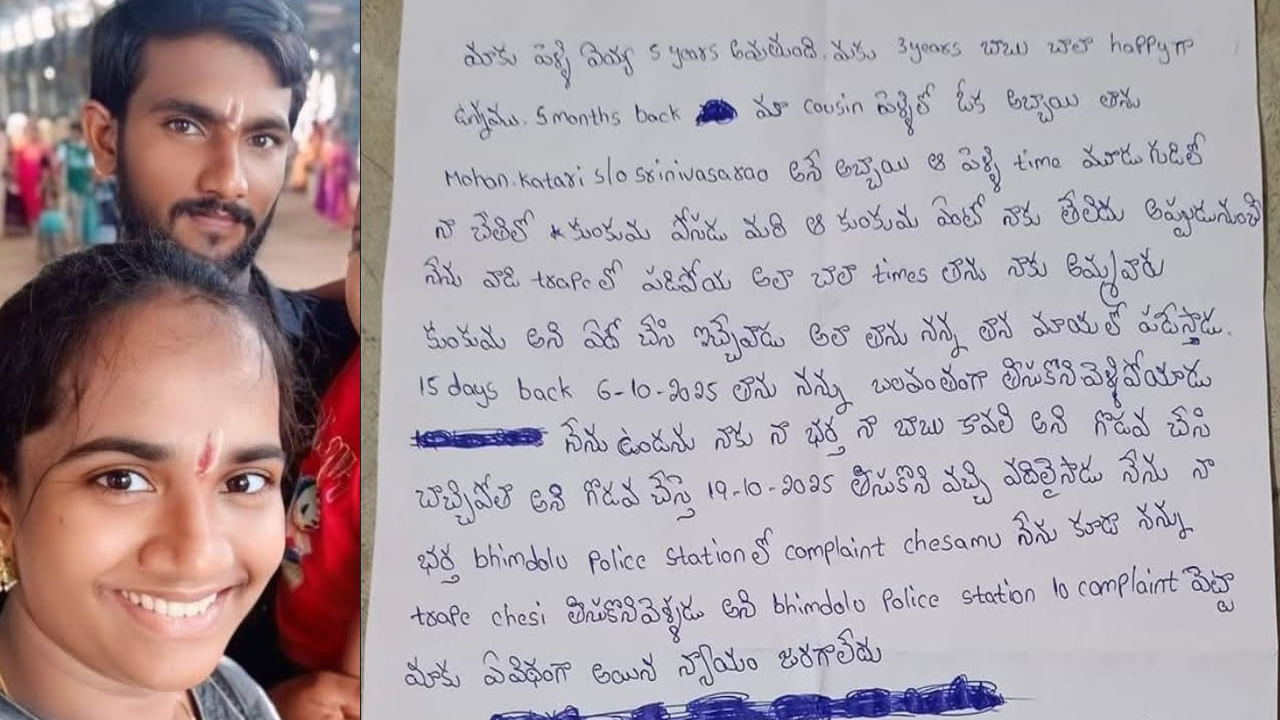 మాకు పెళ్ళి అయ్యి 5 years అవుతుంది. మకు 3years బాబు చాలా happyగా
ఉన్నము. 5months back మా cousin పెళ్ళిలో ఓక అబ్బాయి తాను
Mohan.Katari s/o srinivasarao అనే అబ్బాయి ఆ పెళ్ళి time మూడు గుడిలో
నా చేతిలో కుంకుమ వేసడు మరి ఆ కుంకుమ ఏంటో నాకు తేలిదు అప్పుడునుంచి
నేను వాడి trapeలో పడిపోయ అలా చాలా times తాను నాకు అమ్మవారు
కుంకుమ అని ఏదో చేసి ఇచ్చేవాడు అలా తాను నన్న తాన మాయలో పడేస్తాడు.
15 days back 6-10-2025 తాను నన్ను బలవంతంగా తీసుకొనివెళ్ళిపోయాడు
నేను ఉండను నాకు నా భర్త నా బాబు కావలి అని గొడవ చేసి
చాచ్చిపోతా అని గొడవ చేస్తె 19-10-2025 తీసుకొని వచ్చి వదిలైసాడు నేను నా
భర్త bhimdolu Police stationలో complaint chesamu నేను కూడా నన్ను
trape chesi తీసుకొనివెళ్ళడు అని bhimdolu Police station lo complaint పెట్టా
మాకు ఏవిధంగా అయిన న్యాయం జరగాలేదు